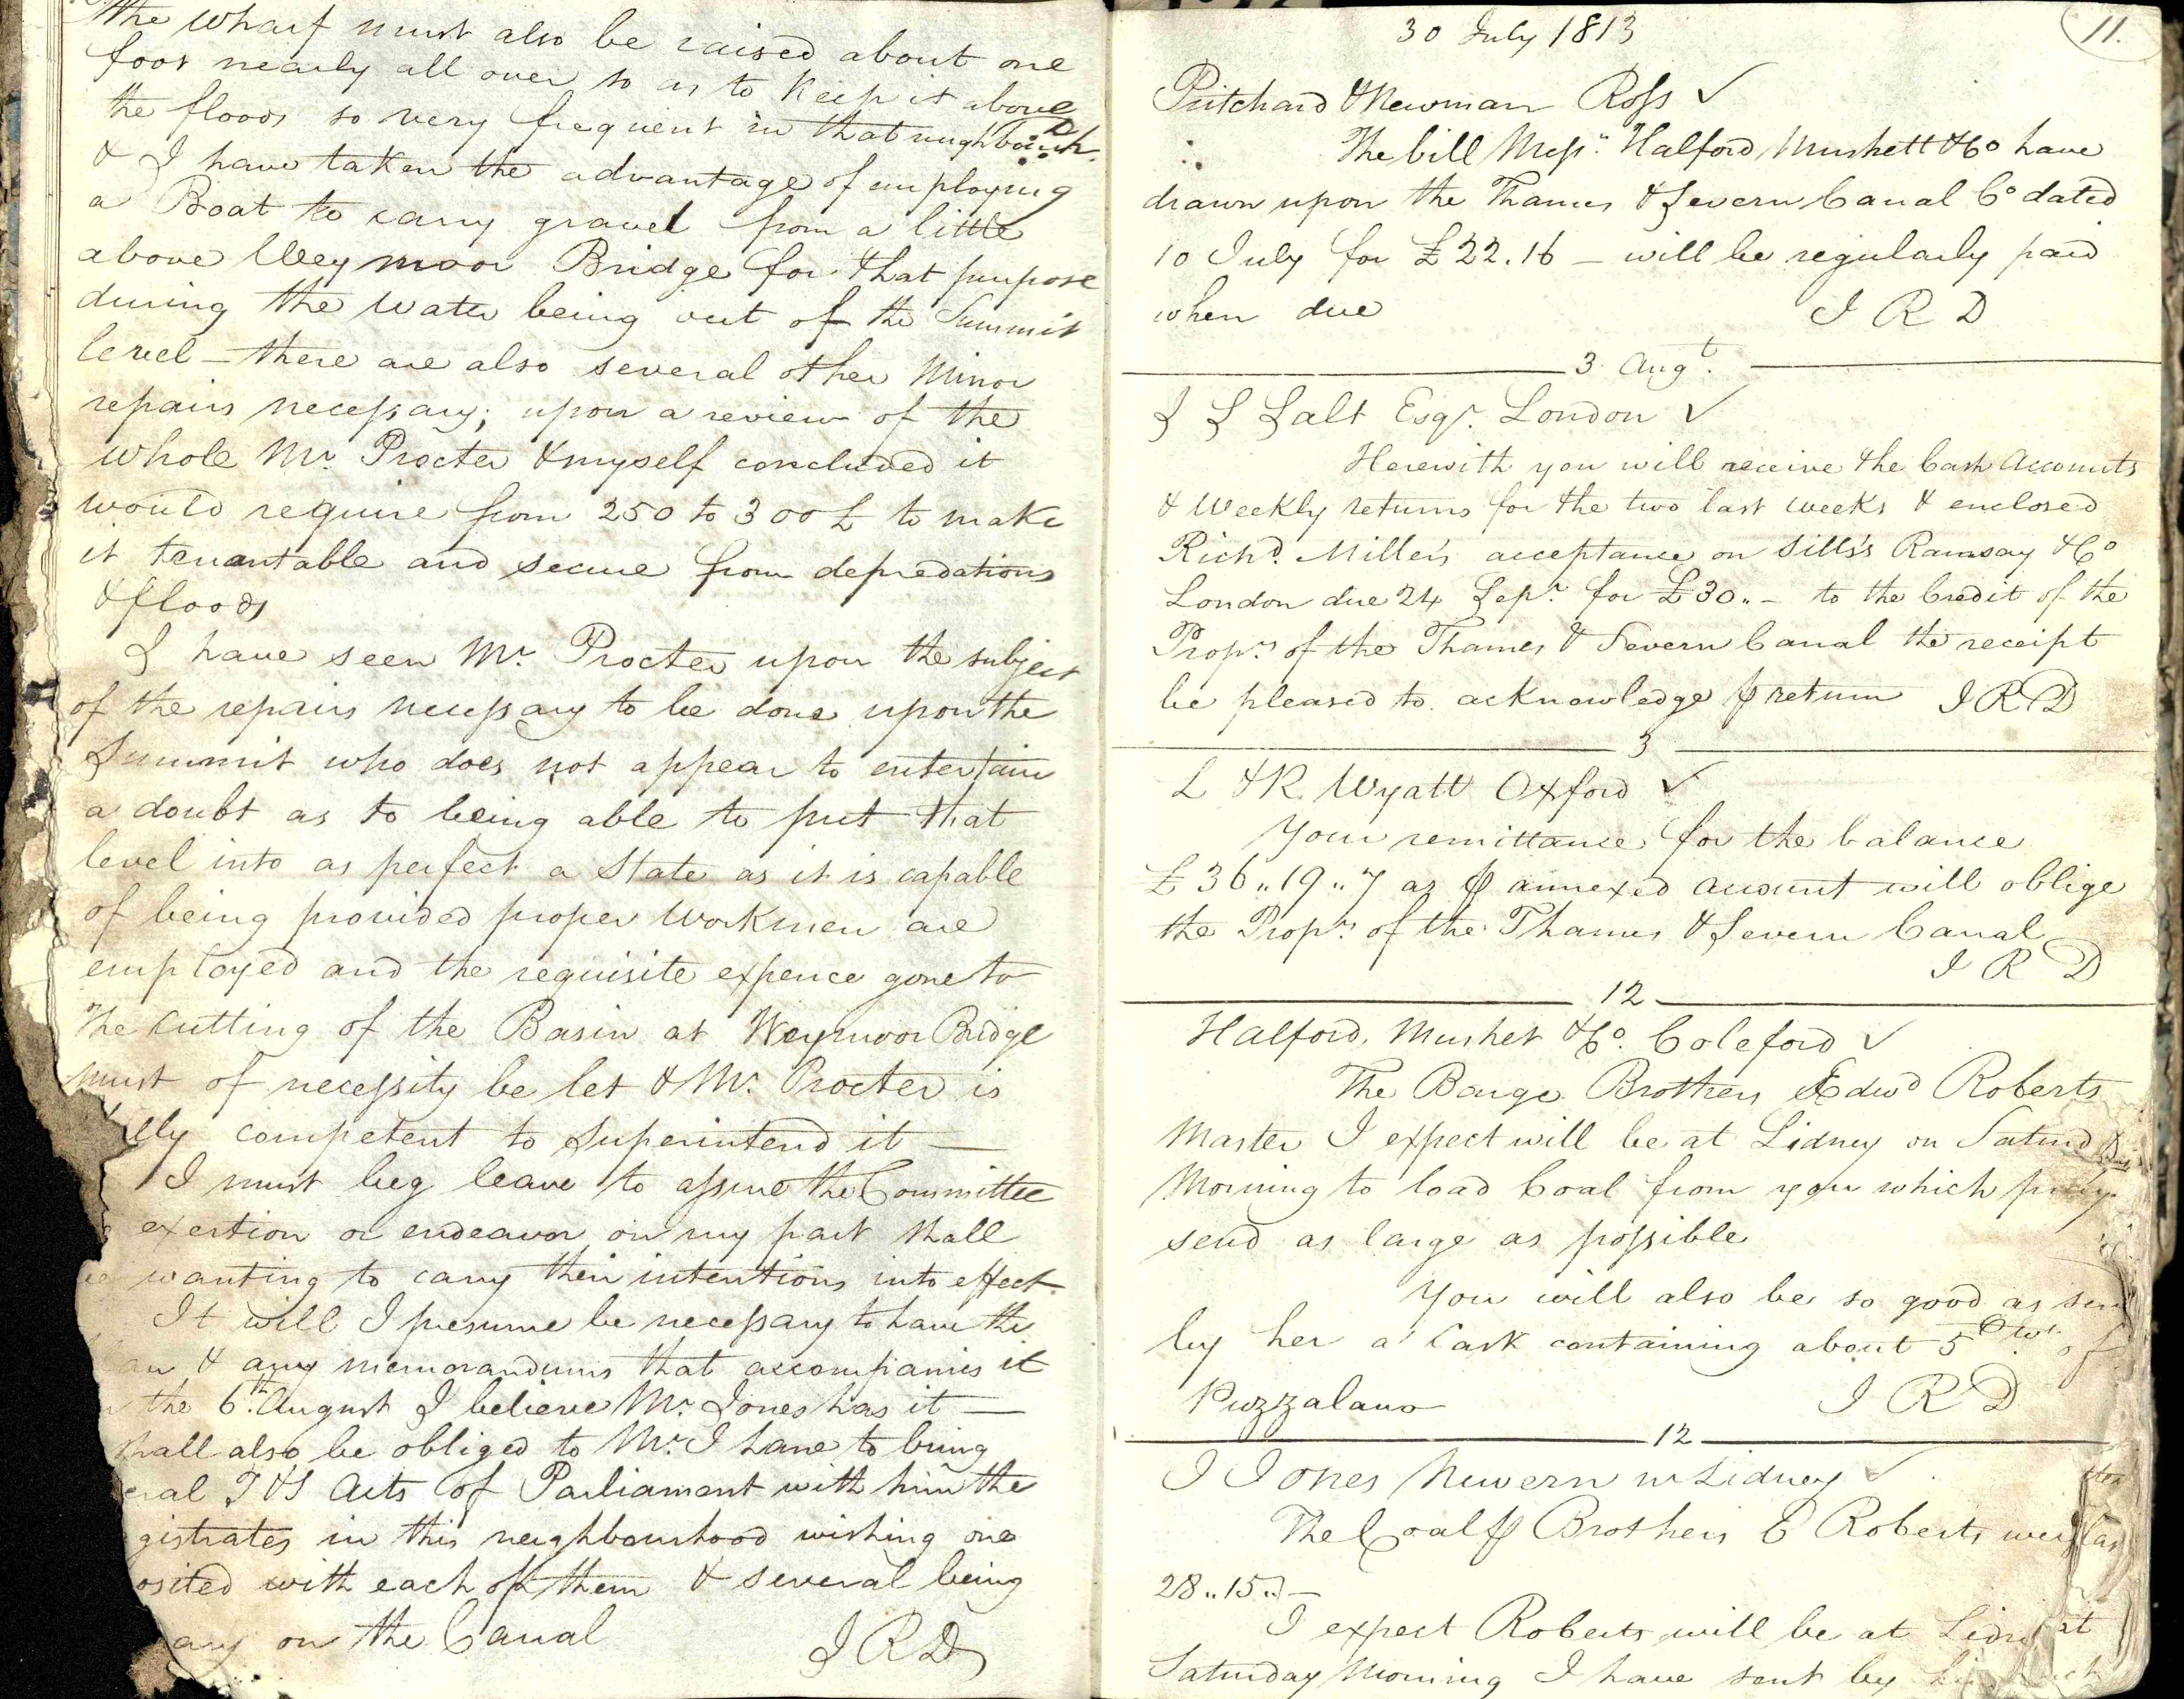 the wharf must also be raised about one
foot nearly all over so as to keep it above
the floods so very frequent in that neighbourhd.
& I have taken the advantage of employing
a Boat to carry gravel from a little
above Weymoor Bridge for that purpose
during the water being out of the Summit
level – there are also several other Minor
repairs necessary; upon a review of the
whole Mr. Procter & myself concluded it
would require from 250 to 300£ to make
it tenantable and secure from depredations
& floods
I have seen Mr. Procter upon the subject
of the repairs necessary to be done upon the
Summit who does not appear to entertain
a doubt as to being able to put that
level into as perfect a State as it is capable
of being provided proper Workmen are
employed and the requisite expence gone to
The cutting of the Basin at Weymoor Bridge
must of necessity be let & Mr. Procter is
lly competent to superintend it —
I must beg leave to assure the Committee
exertion or endeavor on my part shall
be wanting to carry their intentions into effect.
It will I presume be necessary to have the
& any memorandums that accompanies it
the 6th. August I believe Mr. Jones has it —
shall also be obliged to Mr. J Lane to bring
eral T & S Acts of Parliament with him the
gistrates in this neighbourhood wishing one
osited with each of them & several being
ary on the Canal
J R D
11.
30 July 1813
Pritchard & Newman Ross ✓
The bill Messrs. Halford Mushett & Co have
drawn upon the Thames & Severn Canal Co dated
10 July for £22.16 – will be regularly paid
when due J R D
3 Augt.
J S Salt Esqr. London ✓
Herewith you will receive the Cash Accounts
& Weekly returns for the two last weeks & enclosed
Richd. Miller's acceptance on Sills's Ramsay & Co
London due 24 Sepr. for £30..– to the Credit of the
Proprs. of the Thames & Severn Canal the receipt
be pleased to acknowledge ⅌ return J R D
3
L & R Wyatt Oxford ✓
Your remittance for the balance
£36..19..7 as ⅌ annexed account will oblige
the Proprs. of the Thames & Severn Canal
J R D
12
Halford, Mushet & Co. Coleford ✓
The Barge Brothers Edwd Roberts
Master I expect will be at Lidney on Saturd
Morning to load Coal from you which pray
send as large as possible
You will also be so good as send
by her a Cask containing about 5 Cwt. of
Puzzalano J R D
12
J Jones Newern nr Lidney ✓
The Coal ⅌ Brothers E Roberts
28..15..–
I expect Roberts will be at
Saturday Morning I have sent by